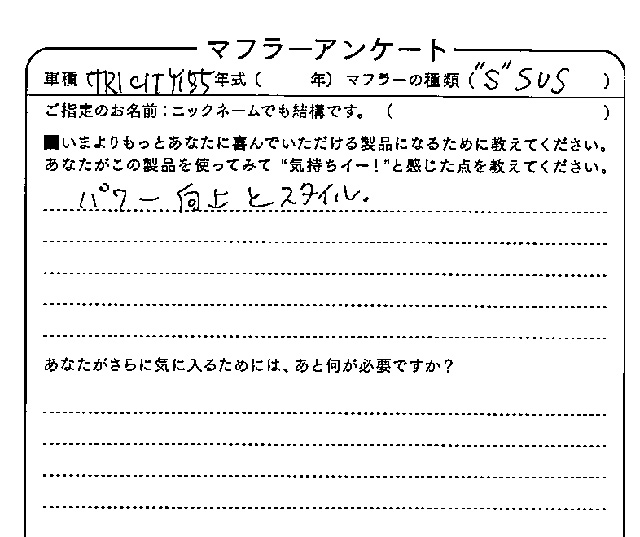 マフラーアンケート
車種 TRICITY155 年式(　　年) マフラーの種類 ("S" SUS )
ご指定のお名前：ニックネームでも結構です。(　　　)
■いまよりもっとあなたに喜んでいただける製品になるために教えてください。
あなたがこの製品を使ってみて“気持ちイー！”と感じた点を教えてください。
パワー向上とスタイル.
あなたがさらに気に入るためには、あと何が必要ですか？